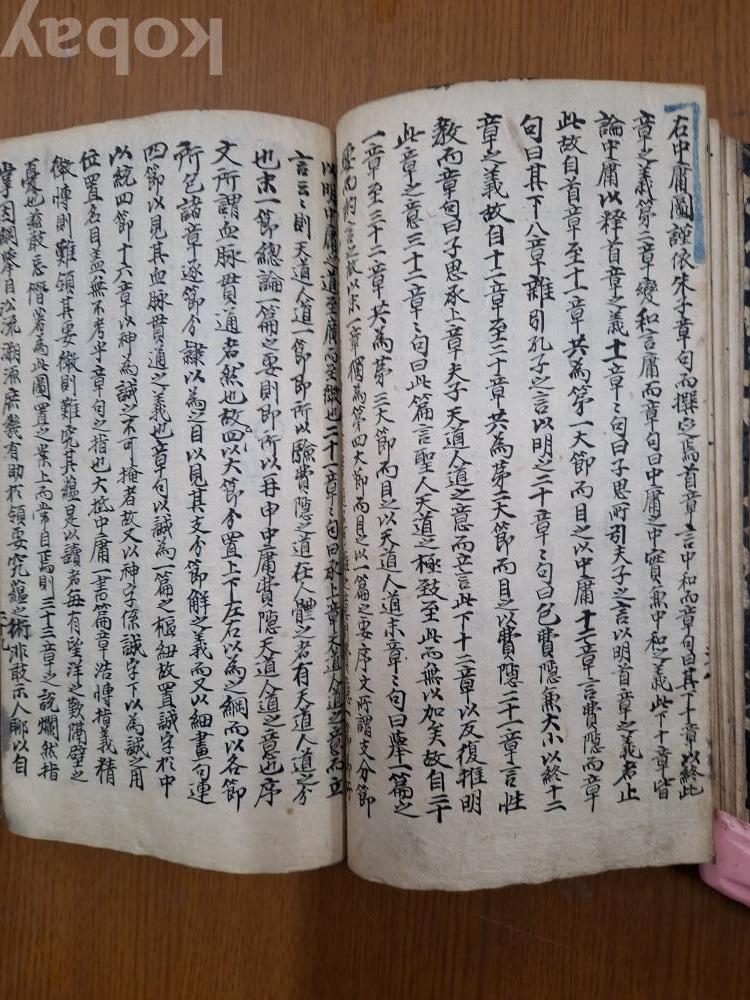 kobay
右中庸圖謹依朱子章句而撰定焉首章言中和而章句曰其下十章以終此
章之義第二章變和言庸而章句曰中庸之中實兼中和之義此下十章皆
論中庸以釋首章之義十一章章句曰子思所引夫子之言以明首章之義者止
此故自首章至十一章共為第一大節而目之以中庸十二章言費隱而章
句曰其下八章雜引孔子之言以明之二十章章句曰包費隱兼大小以終十二
章之義故自十二章至二十章共為第二大節而目之以費隱二十一章言性
教而章句曰子思承上章夫子天道人道之意而立言此下十二章以反復推明
此章之意三十二章章句曰此篇言聖人天道之極致至此而無以加矣故自二十
一章至三十二章共為第三大節而目之以天道人道末章章句曰擧一篇之
要而約言之故以末一章獨為第四大節而目之以一篇之要序文所謂支分節
以明中庸之道至二十一章章句曰承上章天道人道之意而立
言云云則天道人道一節即所以驗費隱之道在人體之者有天道人道之分
也末一節總論一篇之要則即所以再申中庸費隱天道人道之意也序
文所謂血脉貫通者然也故四以大節分置上下左右以為之綱而以各節
所包諸章逐節分隷以為之目以見其支分節解之義而又以細畫句連
四節以見其血脉貫通之義也章句以誠為一篇之樞紐故置誠字於中
以統四節十六章以神為誠之不可掩者故又以神字係誠字下以為誠之用
位置名目盖無不考乎章句之指也大抵中庸一書篇章浩博指義精
微博則難領其要微則難究其蘊是以讀者每有望洋之歎隔壁之
憂也茲敢忘僭畧為此圖置之案上而常目焉則三十三章之說爛然指
掌因綱擧目沿流溯源庶幾有助於領要究蘊之術非敢示人聊以自